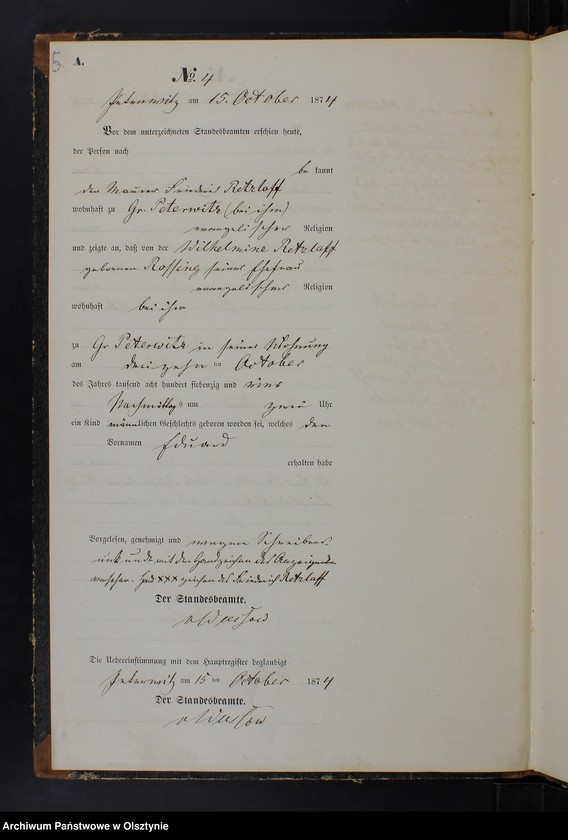 5
A.
No. 4
Peterwitz am 15. October 1874
Vor dem unterzeichneten Standesbeamten erschien heute,
der Person nach
bekannt
der Maurer Friedrich Retzlaff
wohnhaft zu Gr. Peterwitz (bei ihm)
evangelischer Religion
und zeigte an, daß von der Wilhelmine Retzlaff
geborenen Rossing seiner Ehefrau
evangelischer Religion
wohnhaft bei ihm
zu Gr Peterwitz in seiner Wohnung
am dreizehn ten October
des Jahres tausend acht hundert siebenzig und vier
Nachmittags um zwei Uhr
ein Kind männlichen Geschlechts geboren worden sei, welches den
Vornamen Eduard
erhalten habe
Vorgelesen, genehmigt und wegen Schreibens-
unkunde mit dem Handzeichen des Anzeigenden
versehen. Hand xxx zeichen des Friedrich Retzlaff
Der Standesbeamte.
Die Uebereinstimmung mit dem Hauptregister beglaubigt
Peterwitz am 15 ten October 1874
Der Standesbeamte.
Archiwum Państwowe w Olsztynie